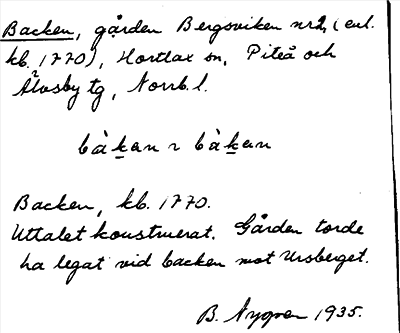 Backen, gården Bergsviken nr 2, (enl.
kb. 1770), Hortlax sn, Piteå och
Älvsby tg, Norrb. l.
bàkan ~ bàkan
Backen, kb. 1770.
Uttalet konstruerat. Gården torde
ha legat vid backen mot Ursberget.
B. Nygren 1935.